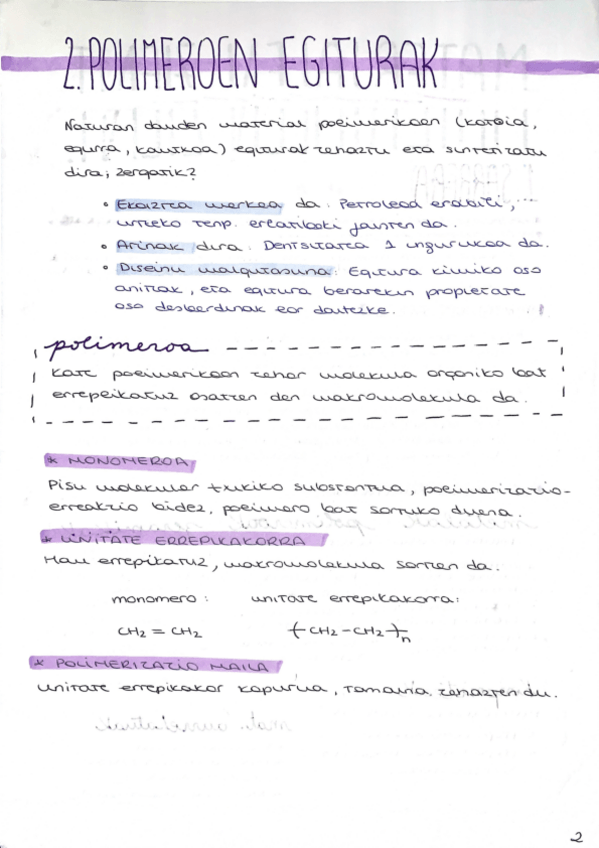 2. POLIMEROEN EGITURAK
Naturan dauden material polimerikoen (kotoia,
egurra, kautxoa) egiturak zehaztu eta sintetizatu
dira; zergatik?
• Ekoiztea merkea da. Petrolioa erabili,
urtzeko tenp. erlatiboki jaisten da.
• Arinak dira. Dentsitatea 1 ingurukoa da.
• Diseinu malgutasuna: Egitura kimiko oso
anitzak, eta egitura berarekin propietate
oso desberdinak eor daitezke.
polimeroa
Kate polimerikoen zehar molekula organiko bat
errepikatuz osatzen den makromolekula da.
* MONOMEROA
Pisu molekular txikiko substantzia, polimerizazio-
erreakzio bidez, polimero bat sortuko duena.
* UNITATE ERREPIKAKORRA
Hau errepikatuz, makromolekula sortzen da.
monomero: unitate errepikakorra:
CH2 = CH2 -(CH2-CH2)-n
* POLIMERIZAZIO MAILA
Unitate errepikakor kopurua, tamaina zehazten du.
2